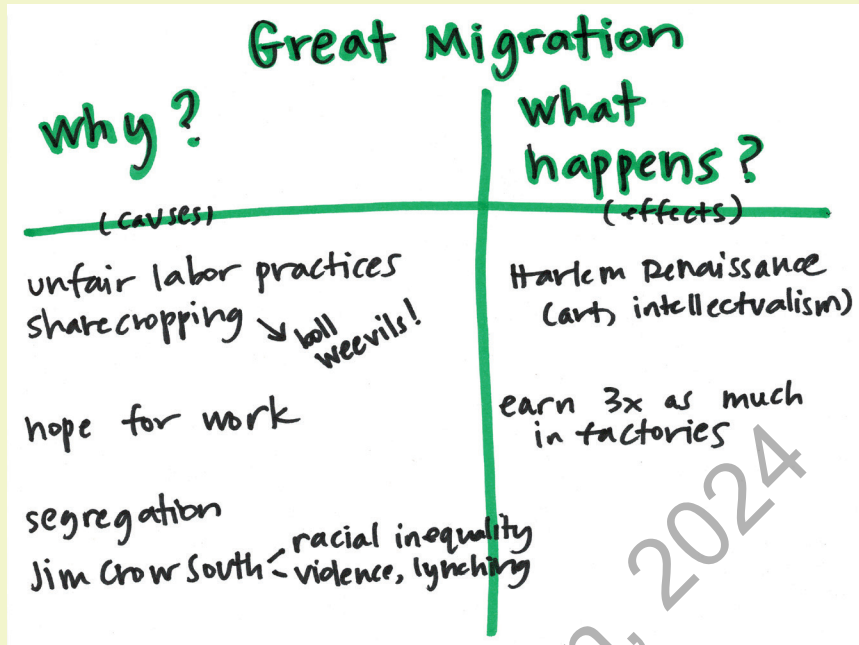 Great Migration
why?
(causes)
unfair labor practices
sharecropping
boll
weevils!
hope for work
segregation
Jim Crow South
racial inequality
violence, lynching
what
happens?
(effects)
Harlem Renaissance
(art, intellectualism)
earn 3x as much
in factories
, 2024